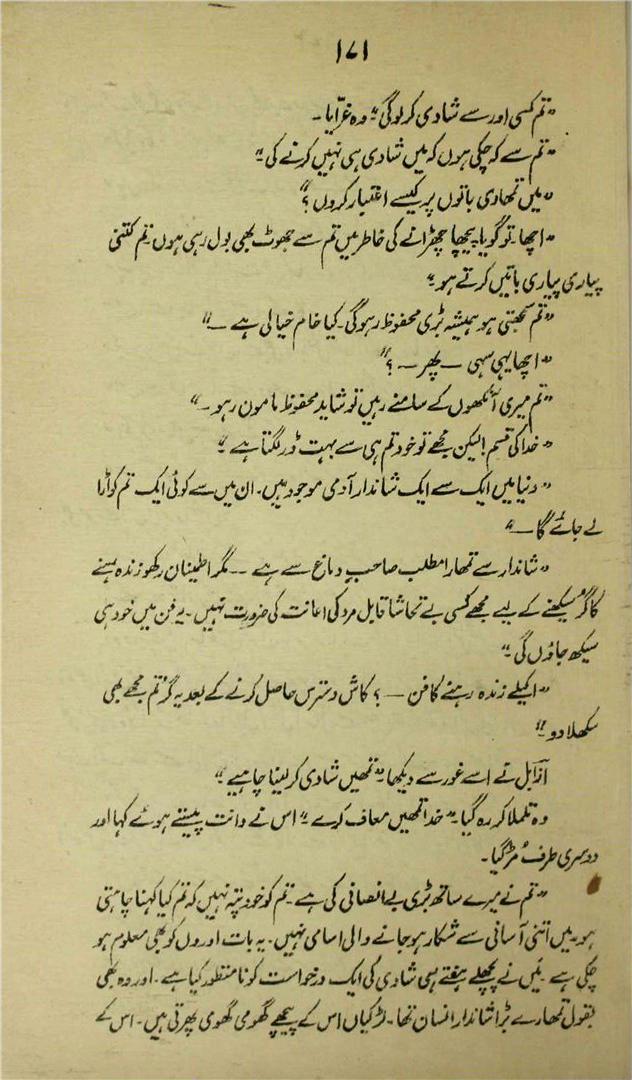 ۱۷۱
"تم کسی اور سے شادی کر لو گی" وہ غرّایا۔
"تم سے کہ چکی ہوں کہ میں شادی ہی نہیں کرنے کی"
"میں تمھاری باتوں پر کیسے اعتبار کروں؟"
"اچھا۔ تو گویا پیچھا چھڑانے کی خاطر میں تم سے جھوٹ بھی بول رہی ہوں۔ تم کتنی
پیاری پیاری باتیں کرتے ہو۔"
"تم سمجھتی ہو ہمیشہ بڑی محفوظ رہو گی۔ کیا خام خیالی ہے —"
"اچھا یہی سہی — پھر — ؟"
"تم میری آنکھوں کے سامنے رہیں تو شاید محفوظ و مامون رہو۔"
"خدا کی قسم! لیکن مجھے تو خود تم ہی سے بہت ڈر لگتا ہے"
"دنیا میں ایک سے ایک شاندار آدمی موجود ہیں۔ ان میں سے کوئی ایک تم کو اڑا
لے جائے گا —"
"شاندار سے تمھارا مطلب صاحبِ دماغ سے ہے — مگر اطمینان رکھو زندہ رہنے
کا گُر سیکھنے کے لیے مجھے کسی بے تحاشا قابل مرد کی اعانت کی ضرورت نہیں۔ یہ فن میں خود ہی
سیکھ جاؤں گی۔"
"اکیلے زندہ رہنے کا فن — ؟ کاش دسترس حاصل کرنے کے بعد یہ گُر تم مجھے بھی
سکھلا دو"
ازابل نے اسے غور سے دیکھا۔ "تمھیں شادی کر لینا چاہیے"
وہ تلملا کر رہ گیا۔ "خدا تمھیں معاف کرے" اس نے دانت پیستے ہوئے کہا اور
دوسری طرف مُڑ گیا۔
"تم نے میرے ساتھ بڑی بے انصافی کی ہے۔ تم کو خود پتہ نہیں کہ تم کیا کہنا چاہتی
ہو۔ میں اتنی آسانی سے شکار ہو جانے والی اسامی نہیں۔ یہ بات اوروں کو بھی معلوم ہو
چکی ہے۔ میں نے پچھلے ہفتے ہی شادی کی ایک درخواست کو نا منظور کیا ہے۔ اور وہ بھی
بقول تمھارے بڑا شاندار انسان تھا۔ لڑکیاں اس کے پیچھے گھومی گھومی پھرتی ہیں۔ اس کے